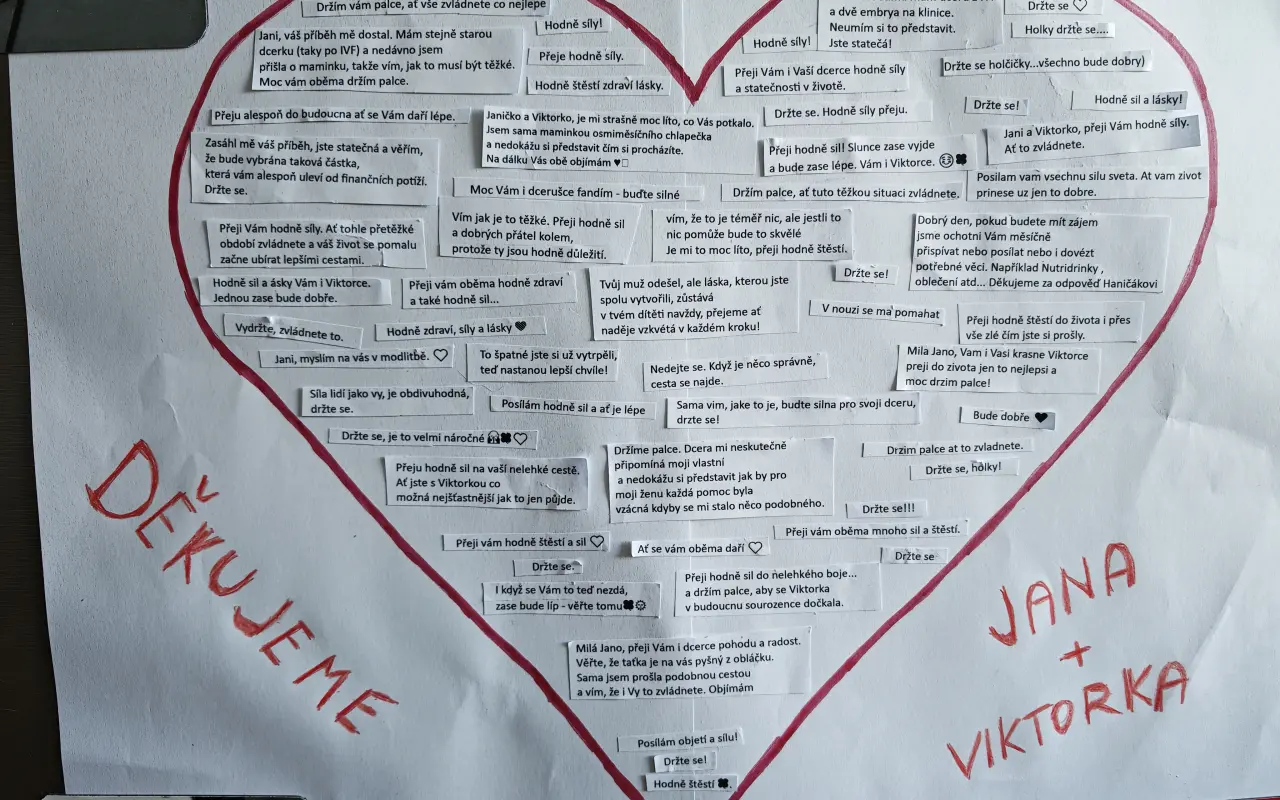 Držím vám palce, ať vše zvládnete co nejlepe
Hodně síly!
Jani, váš příběh mě dostal. Mám stejně starou
dcerku (taky po IVF) a nedávno jsem
přišla o maminku, takže vím, jak to musí být těžké.
Moc vám oběma držím palce.
Přeje hodně síly.
Hodně štěstí zdraví lásky.
a dvě embrya na klinice.
Neumím si to představit.
Jste statečá!
Držte se ♡
Holky držte se....
Hodně síly!
Přeji Vám i Vaší dcerce hodně síly
a statečnosti v životě.
Držte se holčičky...všechno bude dobry)
Držte se!
Hodně sil a lásky!
Přeju alespoň do budoucna ať se Vám daří lépe.
Janičko a Viktorko, je mi strašně moc líto, co Vás potkalo.
Jsem sama maminkou osmiměsíčního chlapečka
a nedokážu si představit čím si procházíte.
Na dálku Vás obě objímám ♥
Držte se. Hodně síly přeju.
Jani a Viktorko, přeji Vám hodně síly.
Ať to zvládnete.
Zasáhl mě váš příběh, jste statečná a věřím,
že bude vybrána taková částka,
která vám alespoň uleví od finančních potíží.
Držte se.
Přeji hodně sil! Slunce zase vyjde
a bude zase lépe. Vám i Viktorce. 😊🍀
Moc Vám i dcerušce fandím - buďte silné
Držím palce, ať tuto těžkou situaci zvládnete.
Posilam vam vsechnu silu sveta. At vam zivot
prinese uz jen to dobre.
Přeji Vám hodně síly. Ať tohle přetěžké
období zvládnete a váš život se pomalu
začne ubírat lepšími cestami.
Vím jak je to těžké. Přeji hodně sil
a dobrých přátel kolem,
protože ty jsou hodně důležití.
vím, že to je téměř nic, ale jestli to
nic pomůže bude to skvělé
Je mi to moc líto, přeji hodně štěstí.
Dobrý den, pokud budete mít zájem
jsme ochotní Vám měsíčně
přispívat nebo posílat nebo i dovézt
potřebné věci. Například Nutridrinky ,
oblečení atd... Děkujeme za odpověď Haničákovi
Hodně sil a ásky Vám i Viktorce.
Jednou zase bude dobře.
Přeji vám oběma hodně zdraví
a také hodně sil...
Tvůj muž odešel, ale láska, kterou jste
spolu vytvořili, zůstává
v tvém dítěti navždy, přejeme ať
naděje vzkvétá v každém kroku!
Držte se!
V nouzi se ma pomahat
Přeji hodně štěstí do života i přes
vše zlé čím jste si prošly.
Vydržte, zvládnete to.
Hodně zdraví, síly a lásky ♥
Jani, myslim na vás v modlitbě. ♡
To špatné jste si už vytrpěli,
teď nastanou lepší chvíle!
Nedejte se. Když je něco správně,
cesta se najde.
Mila Jano, Vam i Vasi krasne Viktorce
preji do života jen to nejlepsi a
moc drzim palce!
Síla lidí jako vy, je obdivuhodná,
držte se.
Posílám hodně sil a ať je lépe
Sama vim, jake to je, budte silna pro svoji dceru,
drzte se!
Bude dobře ♥
Držte se, je to velmi náročné 🍀♡
Držíme palce. Dcera mi neskutečně
připomíná moji vlastní
a nedokážu si představit jak by pro
moji ženu každá pomoc byla
vzácná kdyby se mi stalo něco podobného.
Drzim palce at to zvladnete.
Držte se, holky!
Přeju hodně sil na vaší nelehké cestě.
Ať jste s Viktorkou co
možná nejšťastnější jak to jen půjde.
Držte se!!!
Přeji vám oběma mnoho sil a štěstí.
Přeji vám hodně štěstí a sil ♡
Ať se vám oběma daří ♡
Držte se
Držte se.
I když se Vám to teď nezdá,
zase bude líp - věřte tomu🍀☺
Přeji hodně sil do nelehkého boje...
a držím palce, aby se Viktorka
v budoucnu sourozence dočkala.
Milá Jano, přeji Vám i dcerce pohodu a radost.
Věřte, že taťka je na vás pyšný z obláčku.
Sama jsem prošla podobnou cestou
a vím, že i Vy to zvládnete. Objímám
Posílám objetí a sílu!
Držte se!
Hodně štěstí 🍀.
DĚKUJEME
JANA
+
VIKTORKA